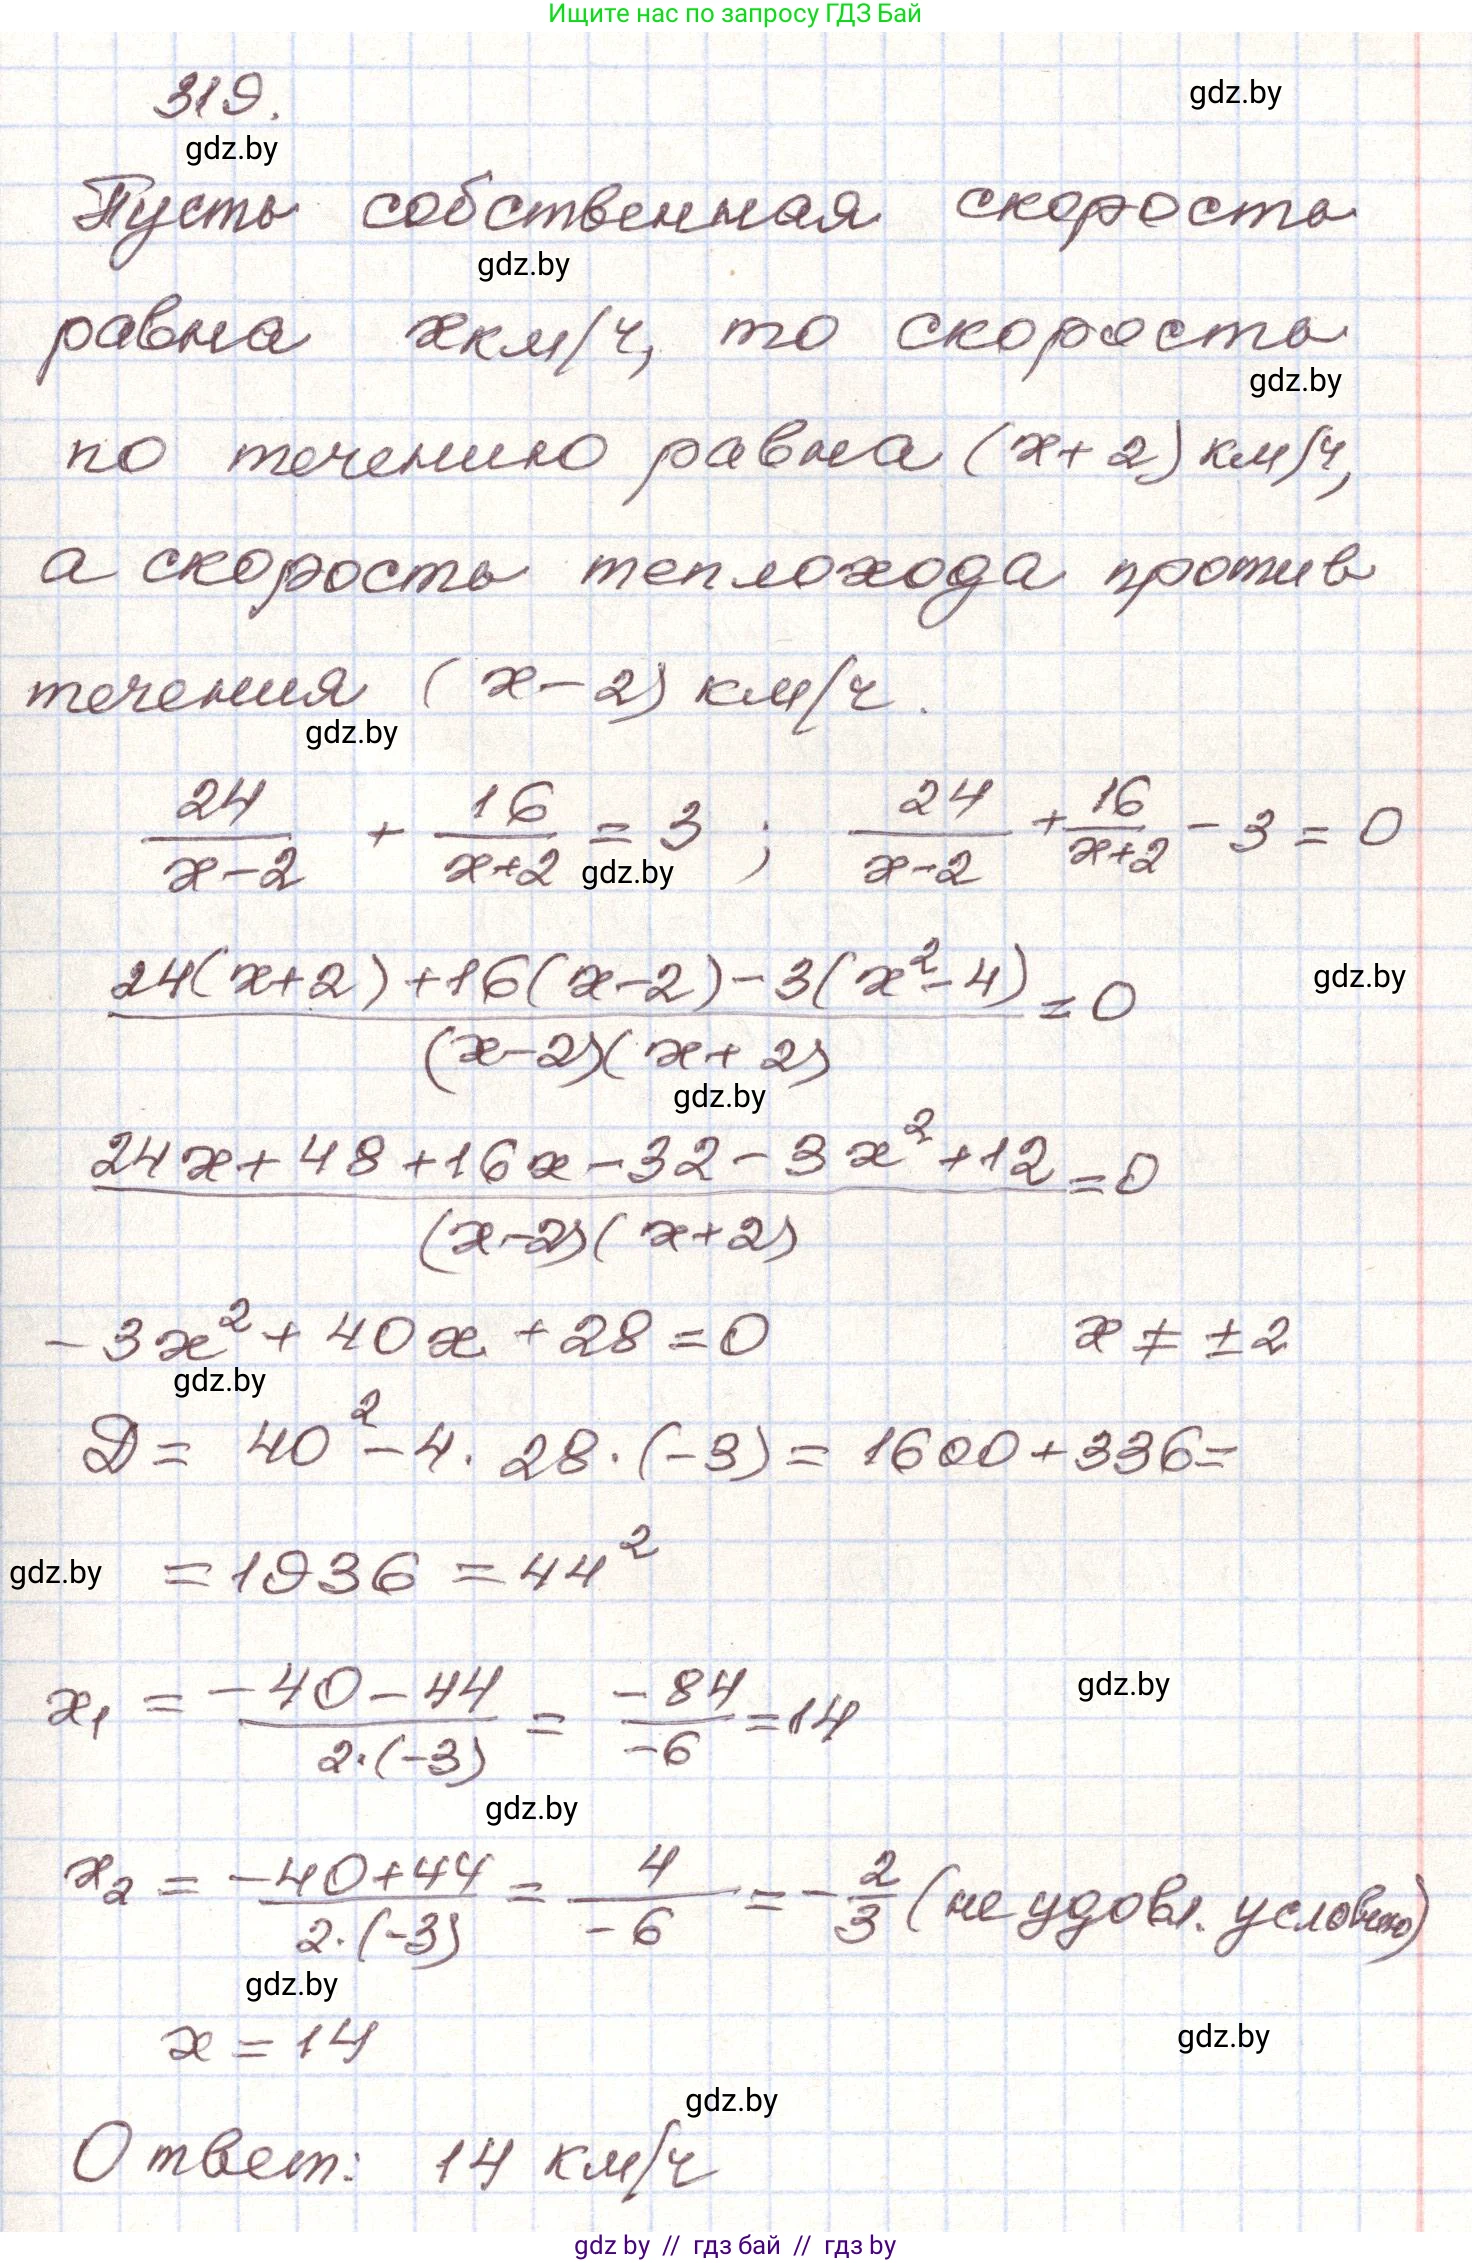 Ищите нас по запросу ГДЗ Бай
319.
gdz.by
gdz.by
Пусть собственная скорость
gdz.by
равна x км/ч, то скорость
gdz.by
по течению равна (x+2) км/ч,
а скорость теплохода против
течения (x-2) км/ч.
gdz.by
24/(x-2) + 16/(x+2) = 3 ; 24/(x-2) + 16/(x+2) - 3 = 0
gdz.by
(24(x+2)+16(x-2)-3(x²-4))/((x-2)(x+2)) = 0
gdz.by
gdz.by
(24x+48+16x-32-3x²+12)/((x-2)(x+2)) = 0
-3x²+40x+28=0 x ≠ ±2
gdz.by
D = 40²-4·28·(-3) = 1600+336=
gdz.by
=1936=44²
x₁ = (-40-44)/(2·(-3)) = -84/-6 = 14
gdz.by
gdz.by
x₂ = (-40+44)/(2·(-3)) = 4/-6 = -2/3 (не удовл. условию)
gdz.by
x = 14
gdz.by
gdz.by
Ответ: 14 км/ч
gdz by // гдз бай // гдз by